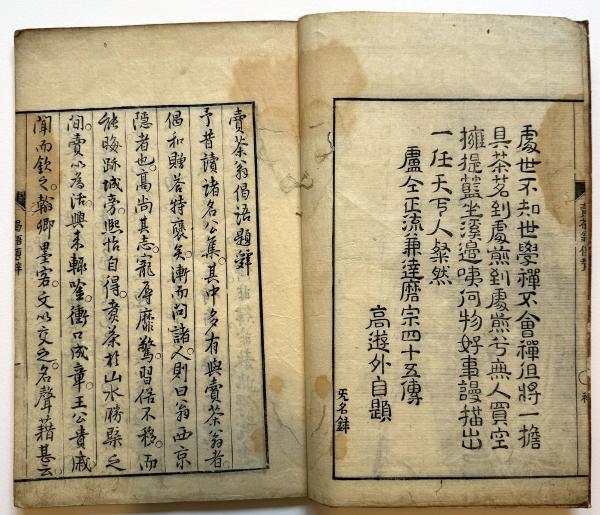 處世不知世學禪不會禪但將一擔
具茶茗到處煎到處煎兮無人買空
擁提籃坐溪邊咦何物好事謾描出
一任天下人粲然
盧仝正流兼達磨宗四十五傳
高遊外自題
賣茶翁偈語題辭
予昔讀諸名公集。其中多有與賣茶翁者
倡和贈答特褒矣。漸而問諸人。則曰翁西京
隱者也。高尚其志。寵辱靡驚。習俗不移。而
能晦跡城旁。熙怡自得。煮茶於山水勝槩之
間。賣以為活。興來輒唫。衝口成章。王公貴戚
聞而欽之。翰卿墨客。文以交之。名聲藉甚云